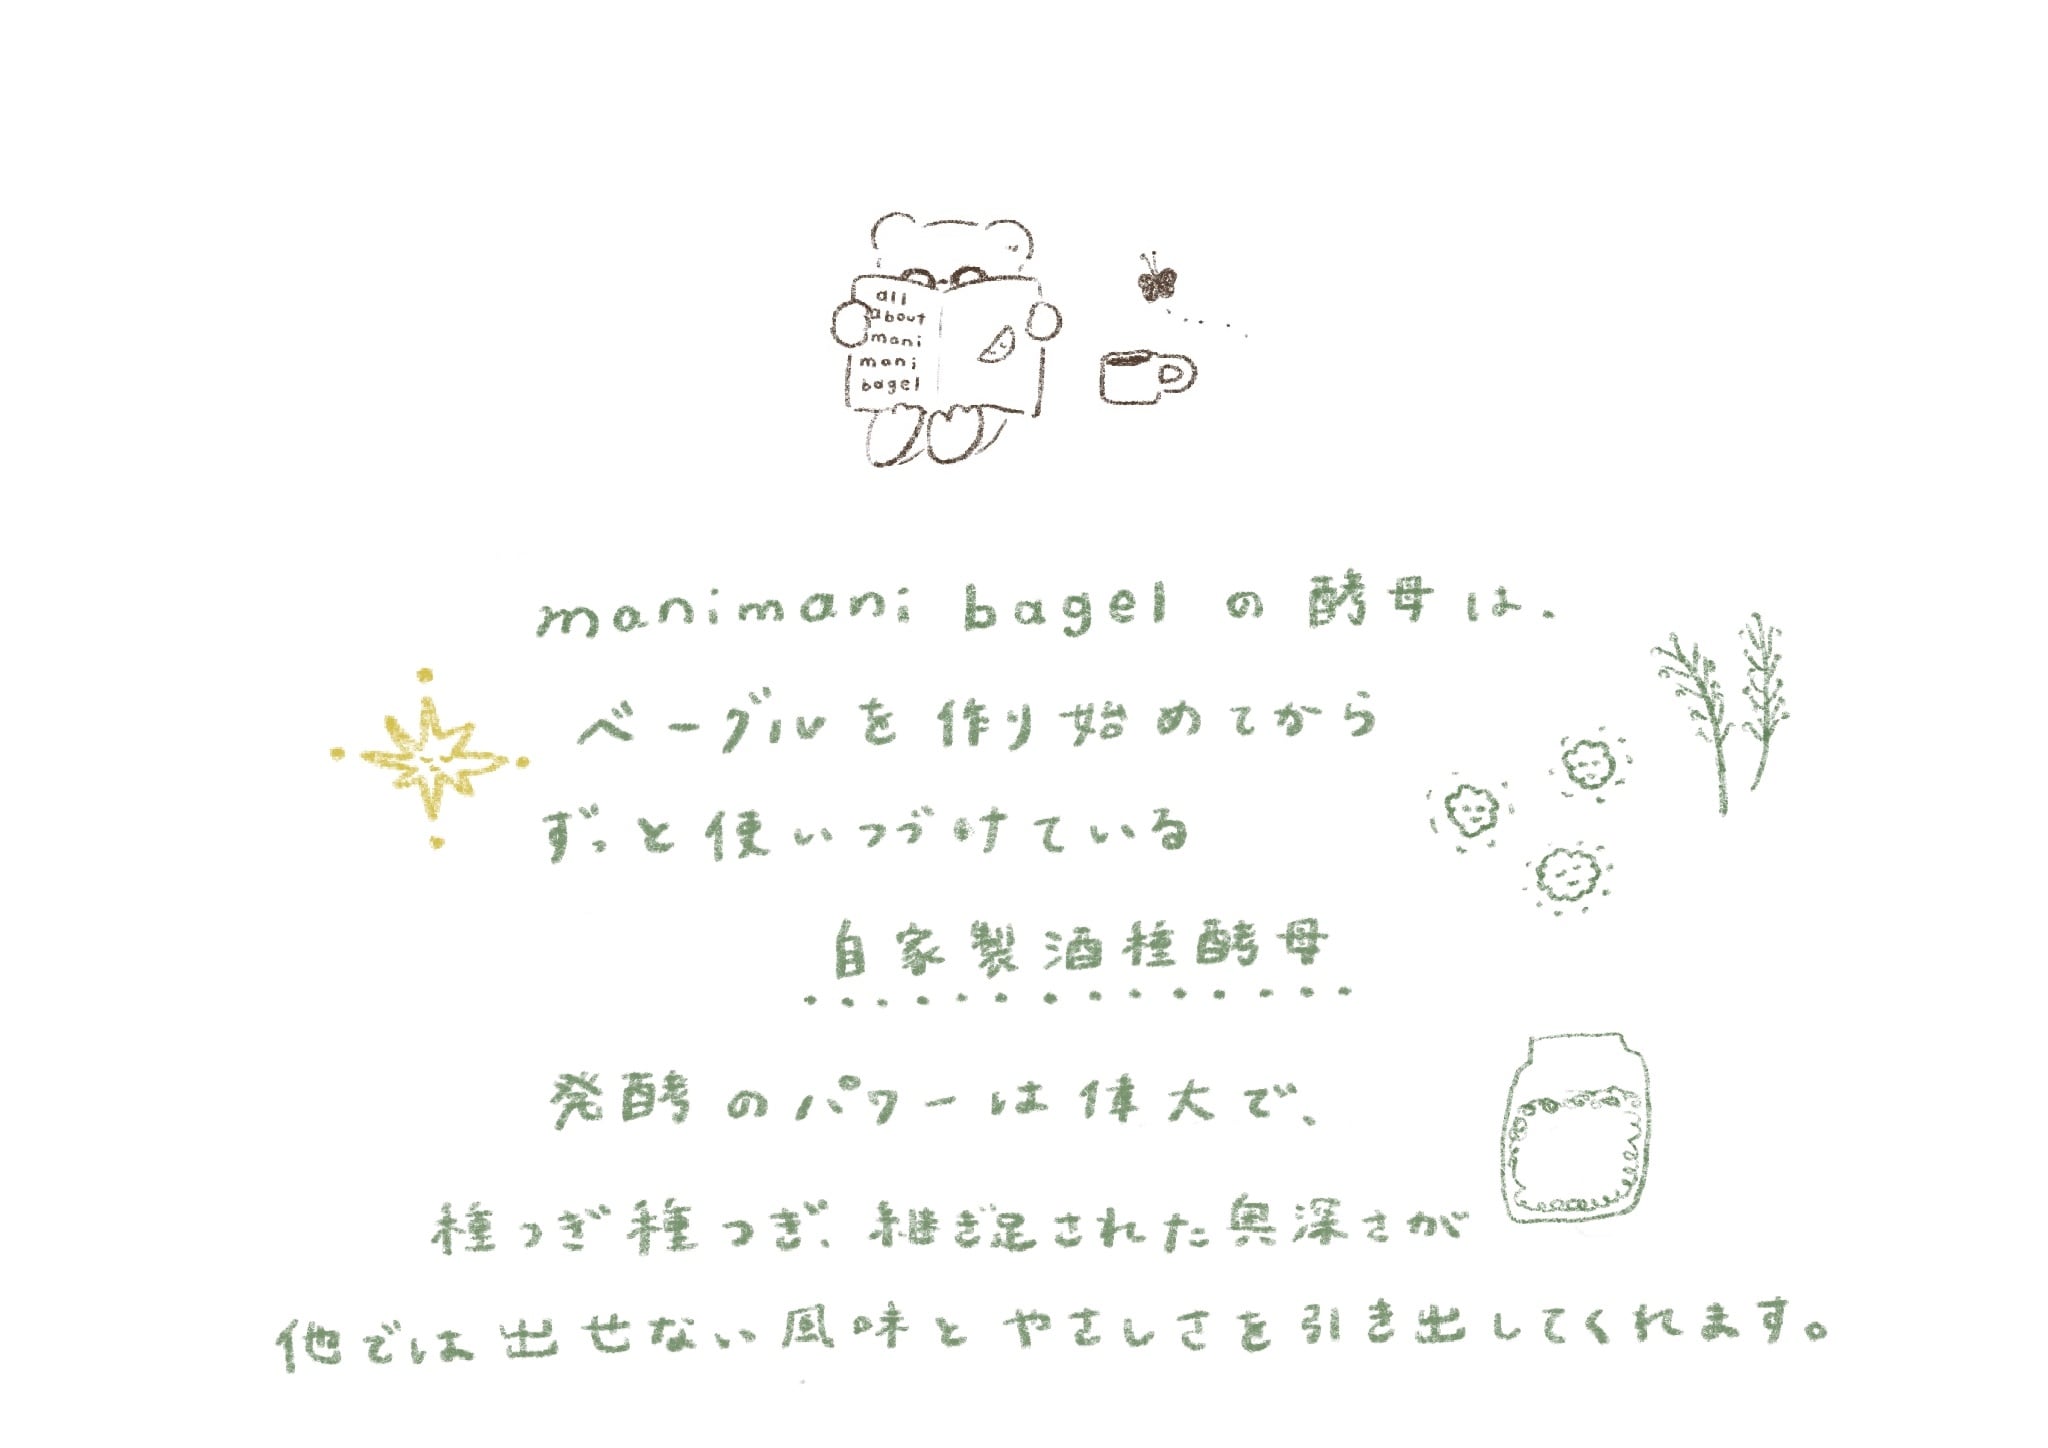 all
about
mani
mani
bagel
manimani bagel の酵母は、
ベーグルを作り始めてから
ずっと使いつづけている
自家製酒種酵母
発酵のパワーは偉大で、
種つぎ種つぎ、継ぎ足された奥深さが
他では出せない風味とやさしさを引き出してくれます。